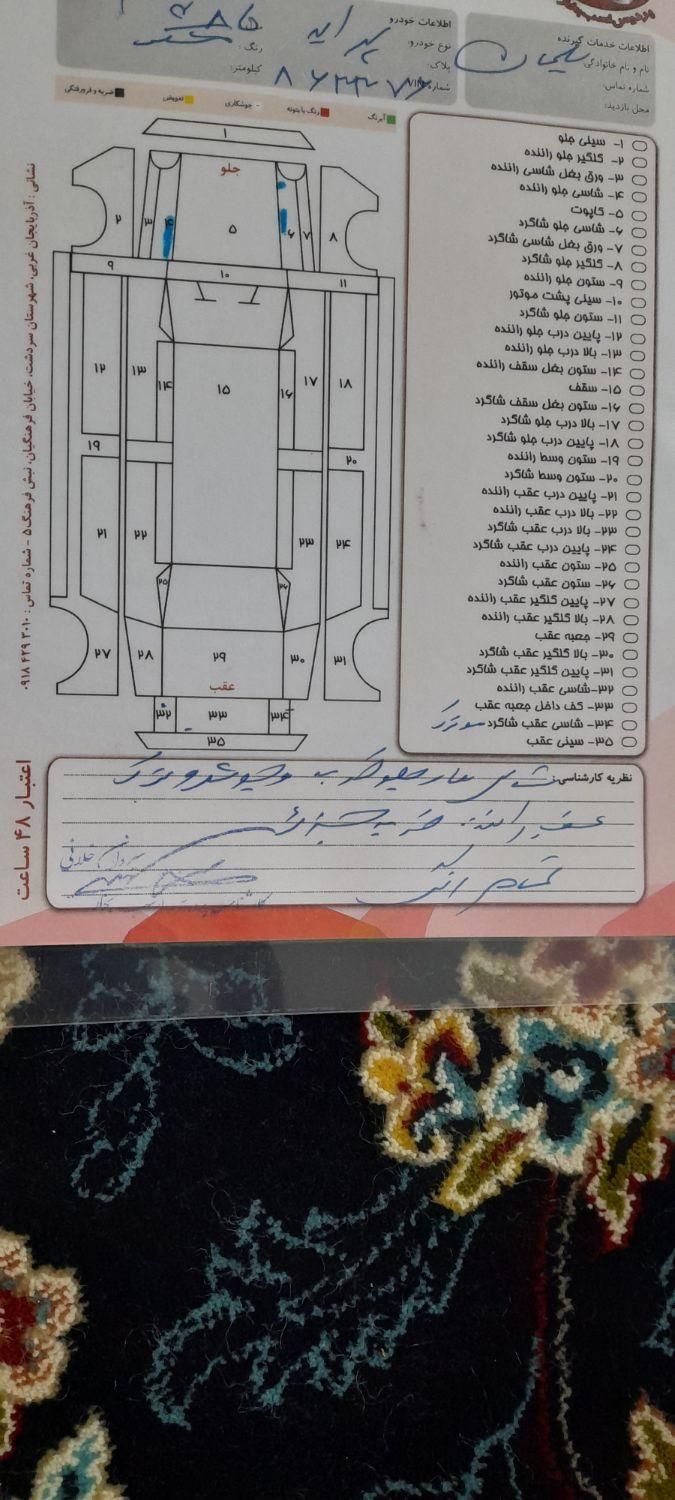 اطلاعات خدمات گیرنده
نام و نام خانوادگی: سلیمان
شماره تماس:
محل بازدید:
اطلاعات خودرو
نوع خودرو: پراید
پلاک:
رنگ:
کیلومتر:
آبرنگ
رنگ یا بتونه
جوشکاری
تعویض
ضربه و فرورفتگی
۱- سینی جلو
۲- گلگیر جلو راننده
۳- ورق بغل شاسی راننده
۴- شاسی جلو راننده
۵- کاپوت
۶- شاسی جلو شاگرد
۷- ورق بغل شاسی شاگرد
۸- گلگیر جلو شاگرد
۹- ستون جلو راننده
۱۰- سینی پشت موتور
۱۱- ستون جلو شاگرد
۱۲- پایین درب جلو راننده
۱۳- بالا درب جلو راننده
۱۴- ستون بغل سقف راننده
۱۵- سقف
۱۶- ستون بغل سقف شاگرد
۱۷- بالا درب جلو شاگرد
۱۸- پایین درب جلو شاگرد
۱۹- ستون وسط راننده
۲۰- ستون وسط شاگرد
۲۱- پایین درب عقب راننده
۲۲- بالا درب عقب راننده
۲۳- بالا درب عقب شاگرد
۲۴- پایین درب عقب شاگرد
۲۵- ستون عقب راننده
۲۶- ستون عقب شاگرد
۲۷- پایین گلگیر عقب راننده
۲۸- بالا گلگیر عقب راننده
۲۹- جعبه عقب
۳۰- بالا گلگیر عقب شاگرد
۳۱- پایین گلگیر عقب شاگرد
۳۲- شاسی عقب راننده
۳۳- کف داخل جعبه عقب
۳۴- شاسی عقب شاگرد
۳۵- سینی عقب
۱
جلو
۲ ۳ ۴ ۵ ۶ ۷ ۸
۹ ۱۰ ۱۱
۱۲ ۱۳ ۱۴ ۱۵ ۱۶ ۱۷ ۱۸
۱۹ ۲۰
۲۱ ۲۲ ۲۳ ۲۴
۲۵ ۲۶
۲۷ ۲۸ ۲۹ ۳۰ ۳۱
عقب
۳۲ ۳۳ ۳۴
۳۵
نظریه کارشناسی:
عقب راننده: ضربه جزئی
تمام رنگ
نشانی: آذربایجان غربی، شهرستان سردشت، خیابان فرهنگیان، نبش فرهنگ ۵ - شماره تماس: ۳۰۱۰ ۴۲۹ ۰۹۱۸
اعتبار ۴۸ ساعت